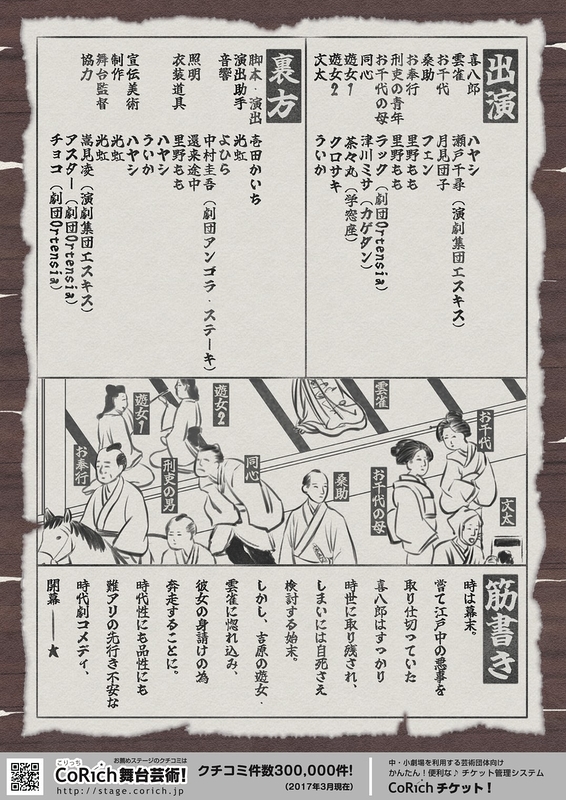 出演
喜八郎　ハヤシ
雲雀　瀬戸千尋（演劇集団エスキス）
お千代　月見団子
桑助　フェン
お奉行　里野もも
刑吏の青年　里野もも
お千代の母　ラック（劇団Ortensia）
同心　津川ミサ（カゲダン）
遊女1　茶々丸（学窓座）
遊女2　クロサキ
文太　ういか
裏方
脚本・演出　壱田かいち
演出助手　光虹
音響　よひら
中村圭吾（劇団アンゴラ・ステーキ）
照明　還来途中
衣装道具　里野もも
ハヤシ
ういか
宣伝美術　ハヤシ
制作　光虹
舞台監督　光虹
協力　嵩見凌（演劇集団エスキス）
アスター（劇団Ortensia）
チョコ（劇団Ortensia）
雲雀
遊女2
遊女1
お千代
お奉行
刑吏の男
同心
桑助
お千代の母
文太
筋書き
時は幕末。
嘗て江戸中の悪事を
取り仕切っていた
喜八郎はすっかり
時世に取り残され、
しまいには自死さえ
検討する始末。
しかし、吉原の遊女・
雲雀に惚れ込み、
彼女の身請けの為
奔走することに。
時代性にも品性にも
難アリの先行き不安な
時代劇コメディ、
開幕――★
お薦めステージのクチコミは
こりっち
CoRich舞台芸術!
http://stage.corich.jp
クチコミ件数300,000件!
(2017年3月現在)
中・小劇場を利用する芸術団体向け
かんたん！便利な♪チケット管理システム
CoRichチケット!